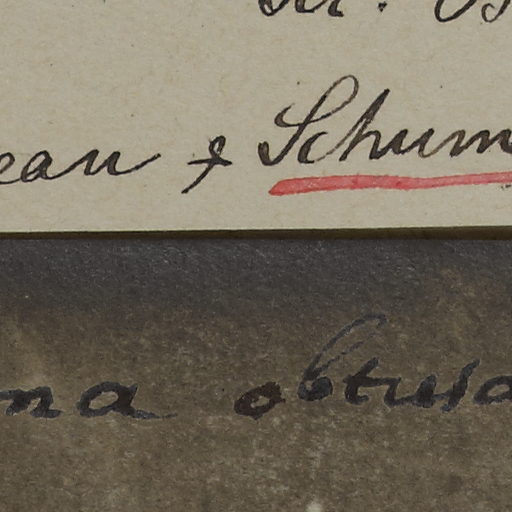 ean & Schum
na obtusa